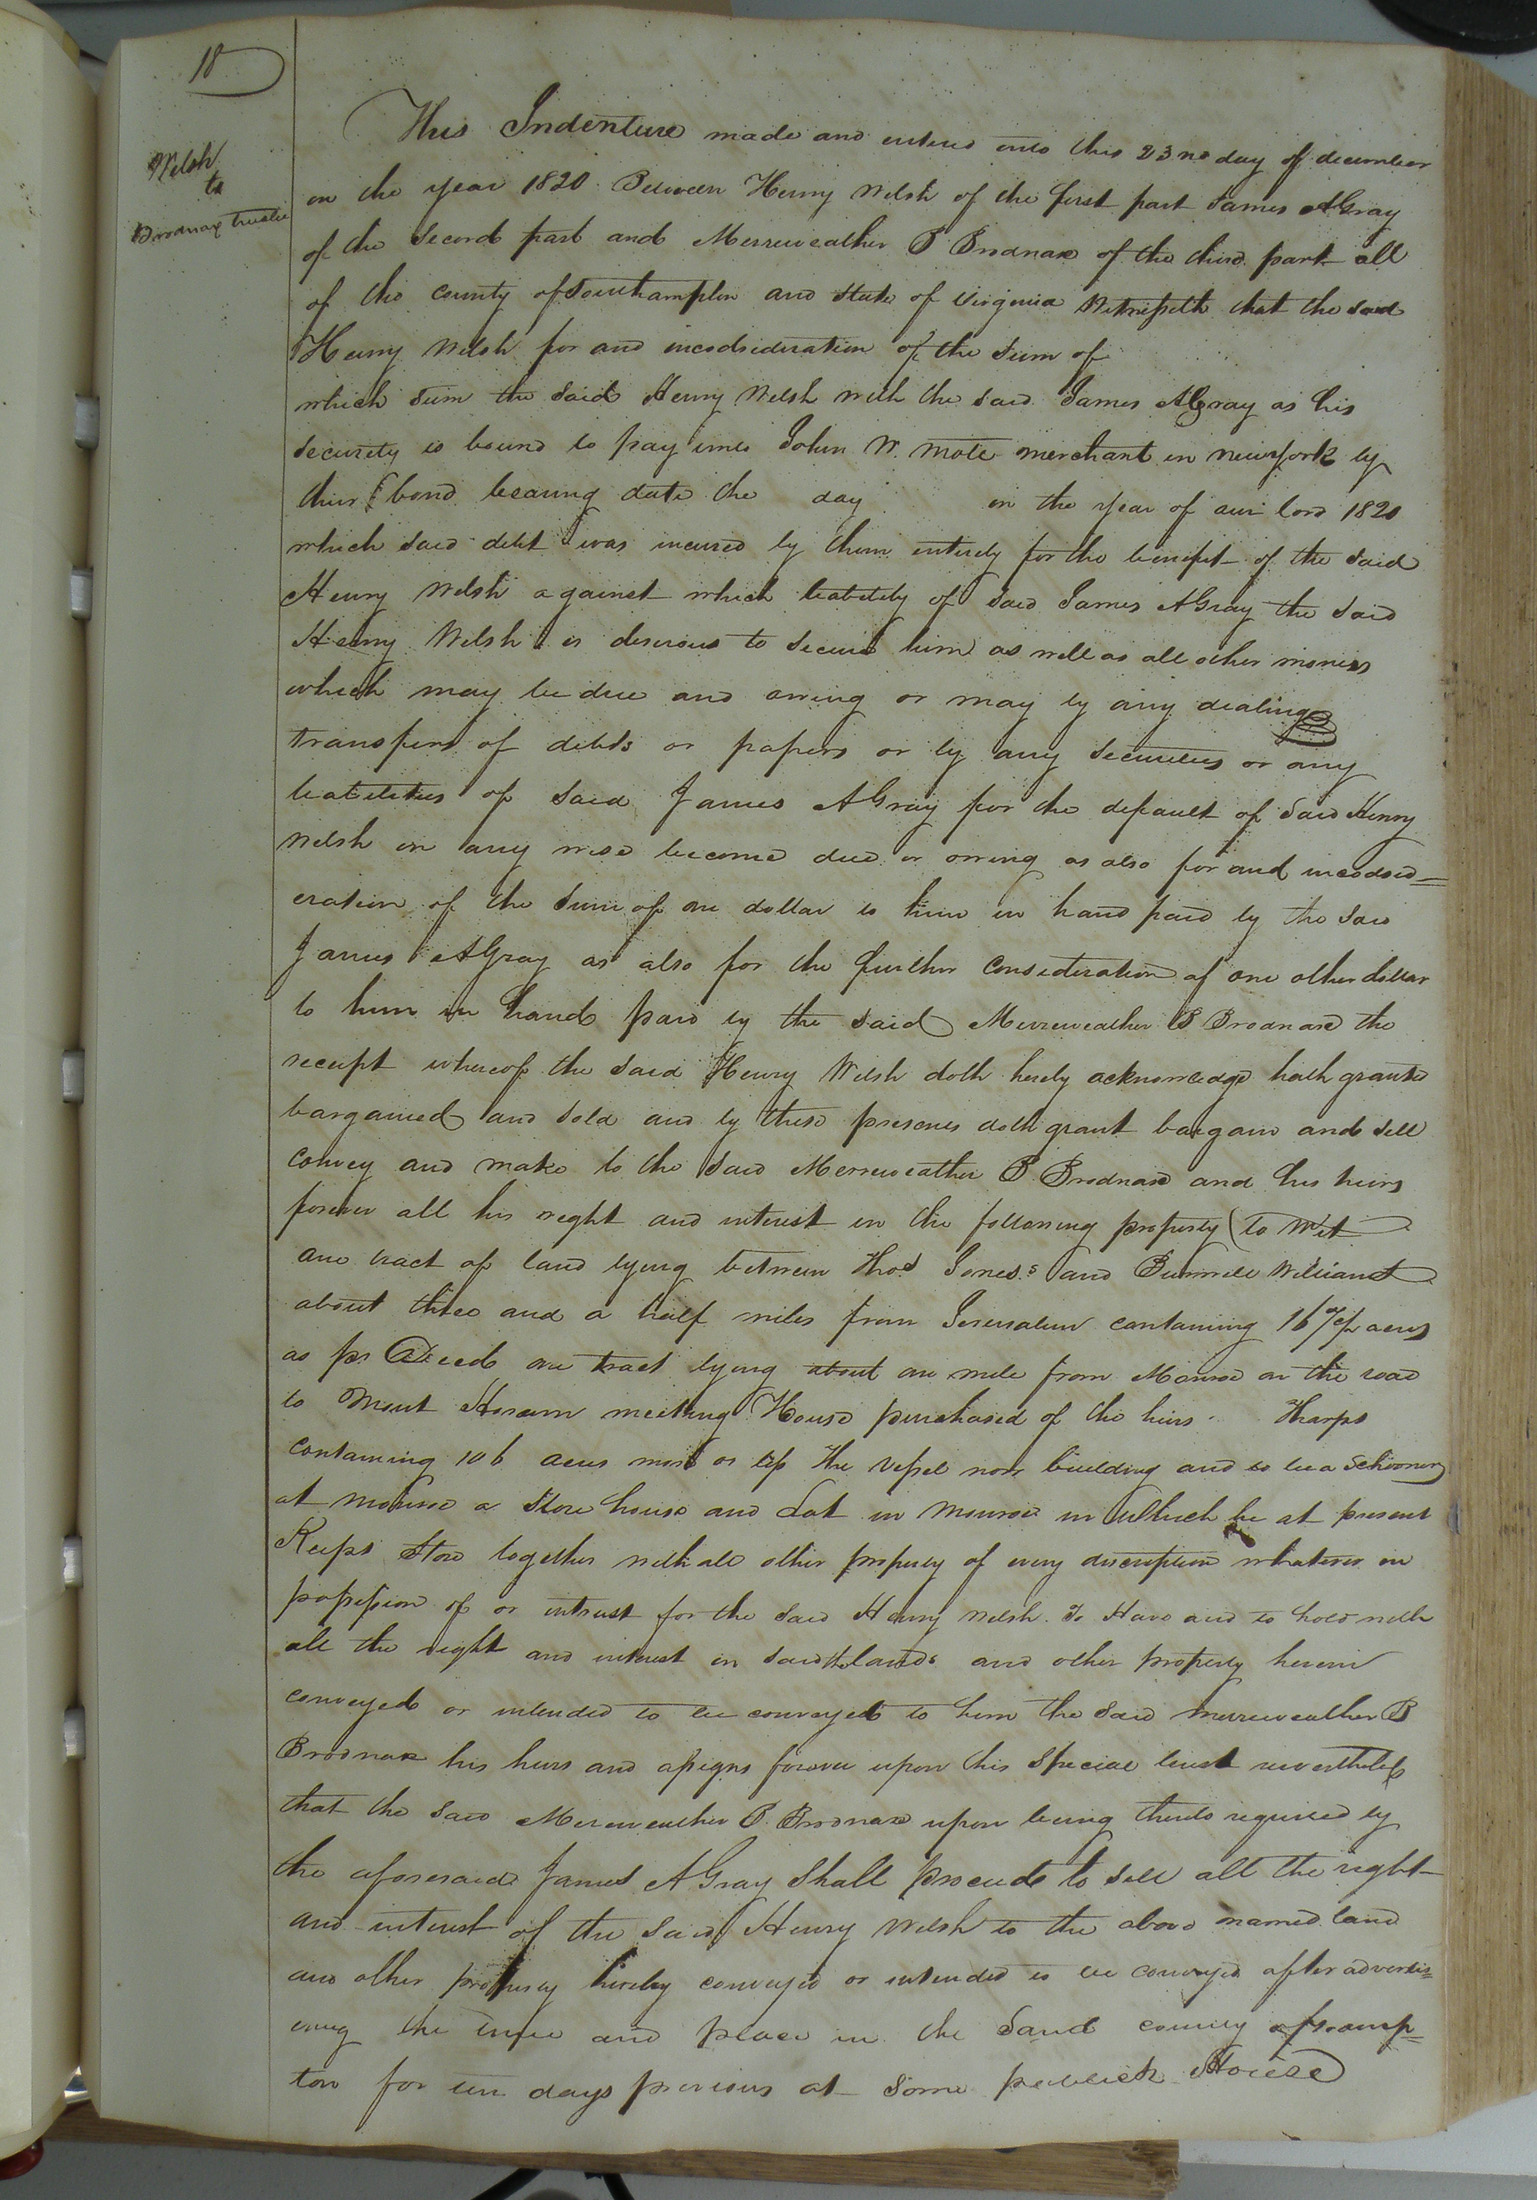 18
Welsh
to
Brodnax trustee
This Indenture made and entered into this 23rd day of december
in the year 1820 Between Henry Welsh of the first part James AGray
of the Second part and Merreweather B Brodnax of the third part all
of the county of Southampton and State of virginia Witnesseth that the said
Henry Welsh for and incodsideration of the Sum of
which Sum the Said Henry Welsh with the said James AGray as his
Security is bound to pay unto John W. Mote merchant in newyork by
their bond bearing date the day in the year of our lord 1820
which said debt was incured by them entirely for the benefit of the Said
Henry Welsh against which leability of said James AGray the Said
Henry Welsh is desirous to Secure him as well as all other monies
which may be due and owing or may by any dealings
transfers of debts or papers or by any Securities or any
leabelities of Said James AGray for the default of Said Henry
Welsh in any wise become due or owing as also for and incodsid=
eration of the Sum of one dollar to him in hand paid by the Said
James AGray as also for the further Consideration of one other dollar
to him in hand paid by the Said Merreweather B Brodnax the
receipt whereof the Said Henry Welsh doth hereby acknowledge hath granted
bargained and Sold and by these presence doth grant bargain and Sell
Convey and make to the Said Merreweather B Brodnax and his heirs
forever all his right and interest in the following property (to Wit
one tract of land lying between Thos Jones's and Burwell Williams
about three and a half miles from Jerusalem containing 167 acres
as pr Deed one tract lying about one mile from Monroe on the road
to Mount Horeum meeting House purchased of the heirs Tharps
containing 106 acres more or less The vessel now building and to be a Schooner
at monroe a Store house and Lot in Monroe in Which he at present
Keeps Store together with all other property of every discription whatever in
possession of or intrust for the Said Henry Welsh. To Have and to hold with
all the right and interest in said lands and other property herein
conveyed or intended to be conveyed to him the Said merreweather B
Brodnax his heirs and assigns forever upon this Special trust nevertheless
that the Said Merreweather B. Brodnax upon being thereto required by
the aforesaid James AGray Shall proceed to Sell all the right
and interest of the Said Henry Welsh to the above named land
and other property hereby conveyed or intended to be conveyed after advertis=
eing the time and place in the Said county of Hamp=
ton for ten days previous at Some publick House